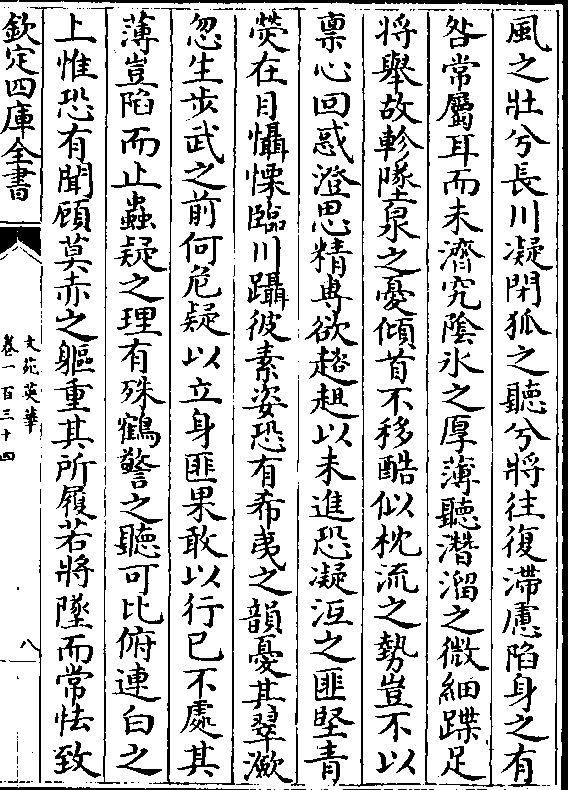 風之壯兮長川凝閉狐之聽兮將往復滯慮陷身之有
咎常屬耳而未濟究陰氷之厚薄聽潛溜之微細蹀足
將舉故軫墜泉之憂傾首不移酷似枕流之勢豈不以
禀心回惑澄思精専欲趦趄以未進恐凝沍之匪堅青
熒在目懾慄臨川躡彼素姿恐有希夷之韻憂其翠澉
忽生步武之前何危疑以立身匪果敢以行已不處其
薄豈陷而止蟲疑之理有殊鶴警之聽可比俯連白之
上惟恐有聞顧莫赤之軀重其所履若將墜而常怯致
欽定四庫全書
文苑英華
卷一百三十四
八